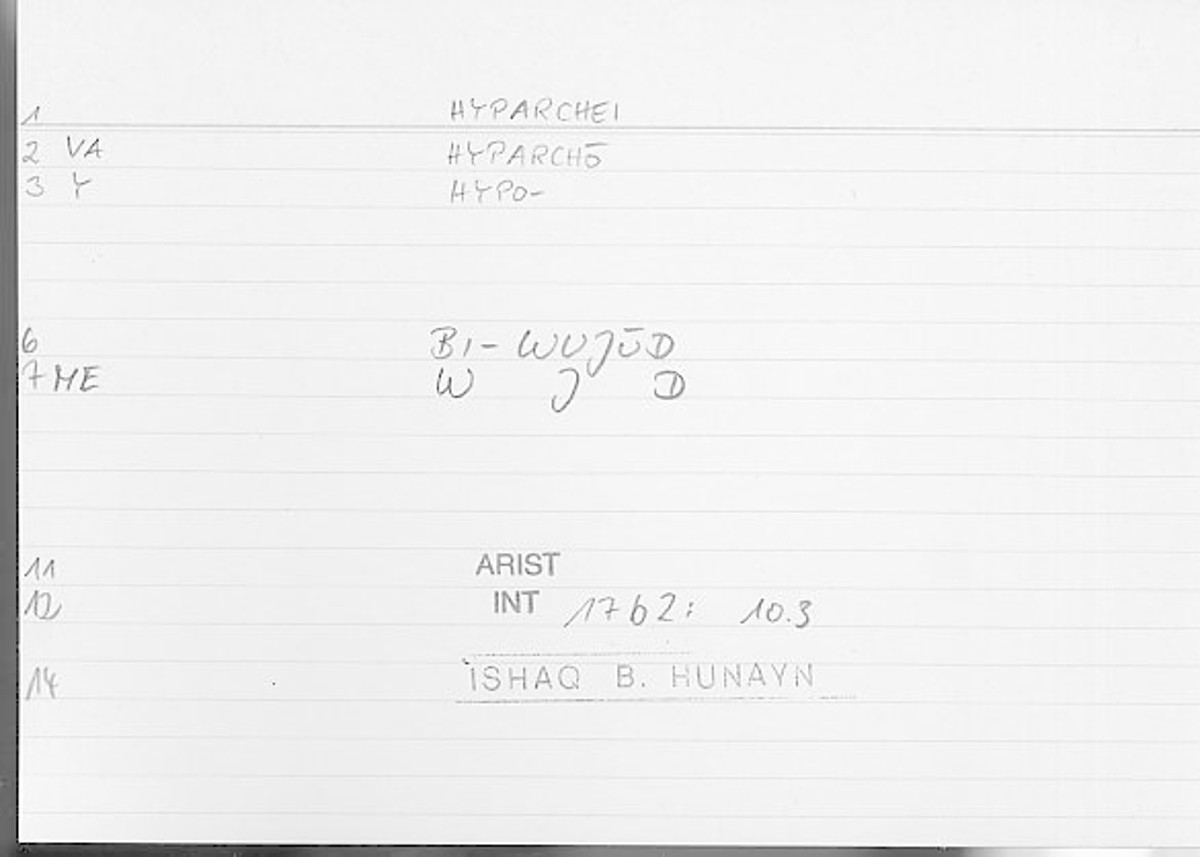 1 HYPARCHEI
2 VA HYPARCHŌ
3 Y HYPO-
6 BI- WUJŪD
7 ME W J D
11 ARIST
12 INT 17b2: 10.3
14 ISHAQ B. HUNAYN